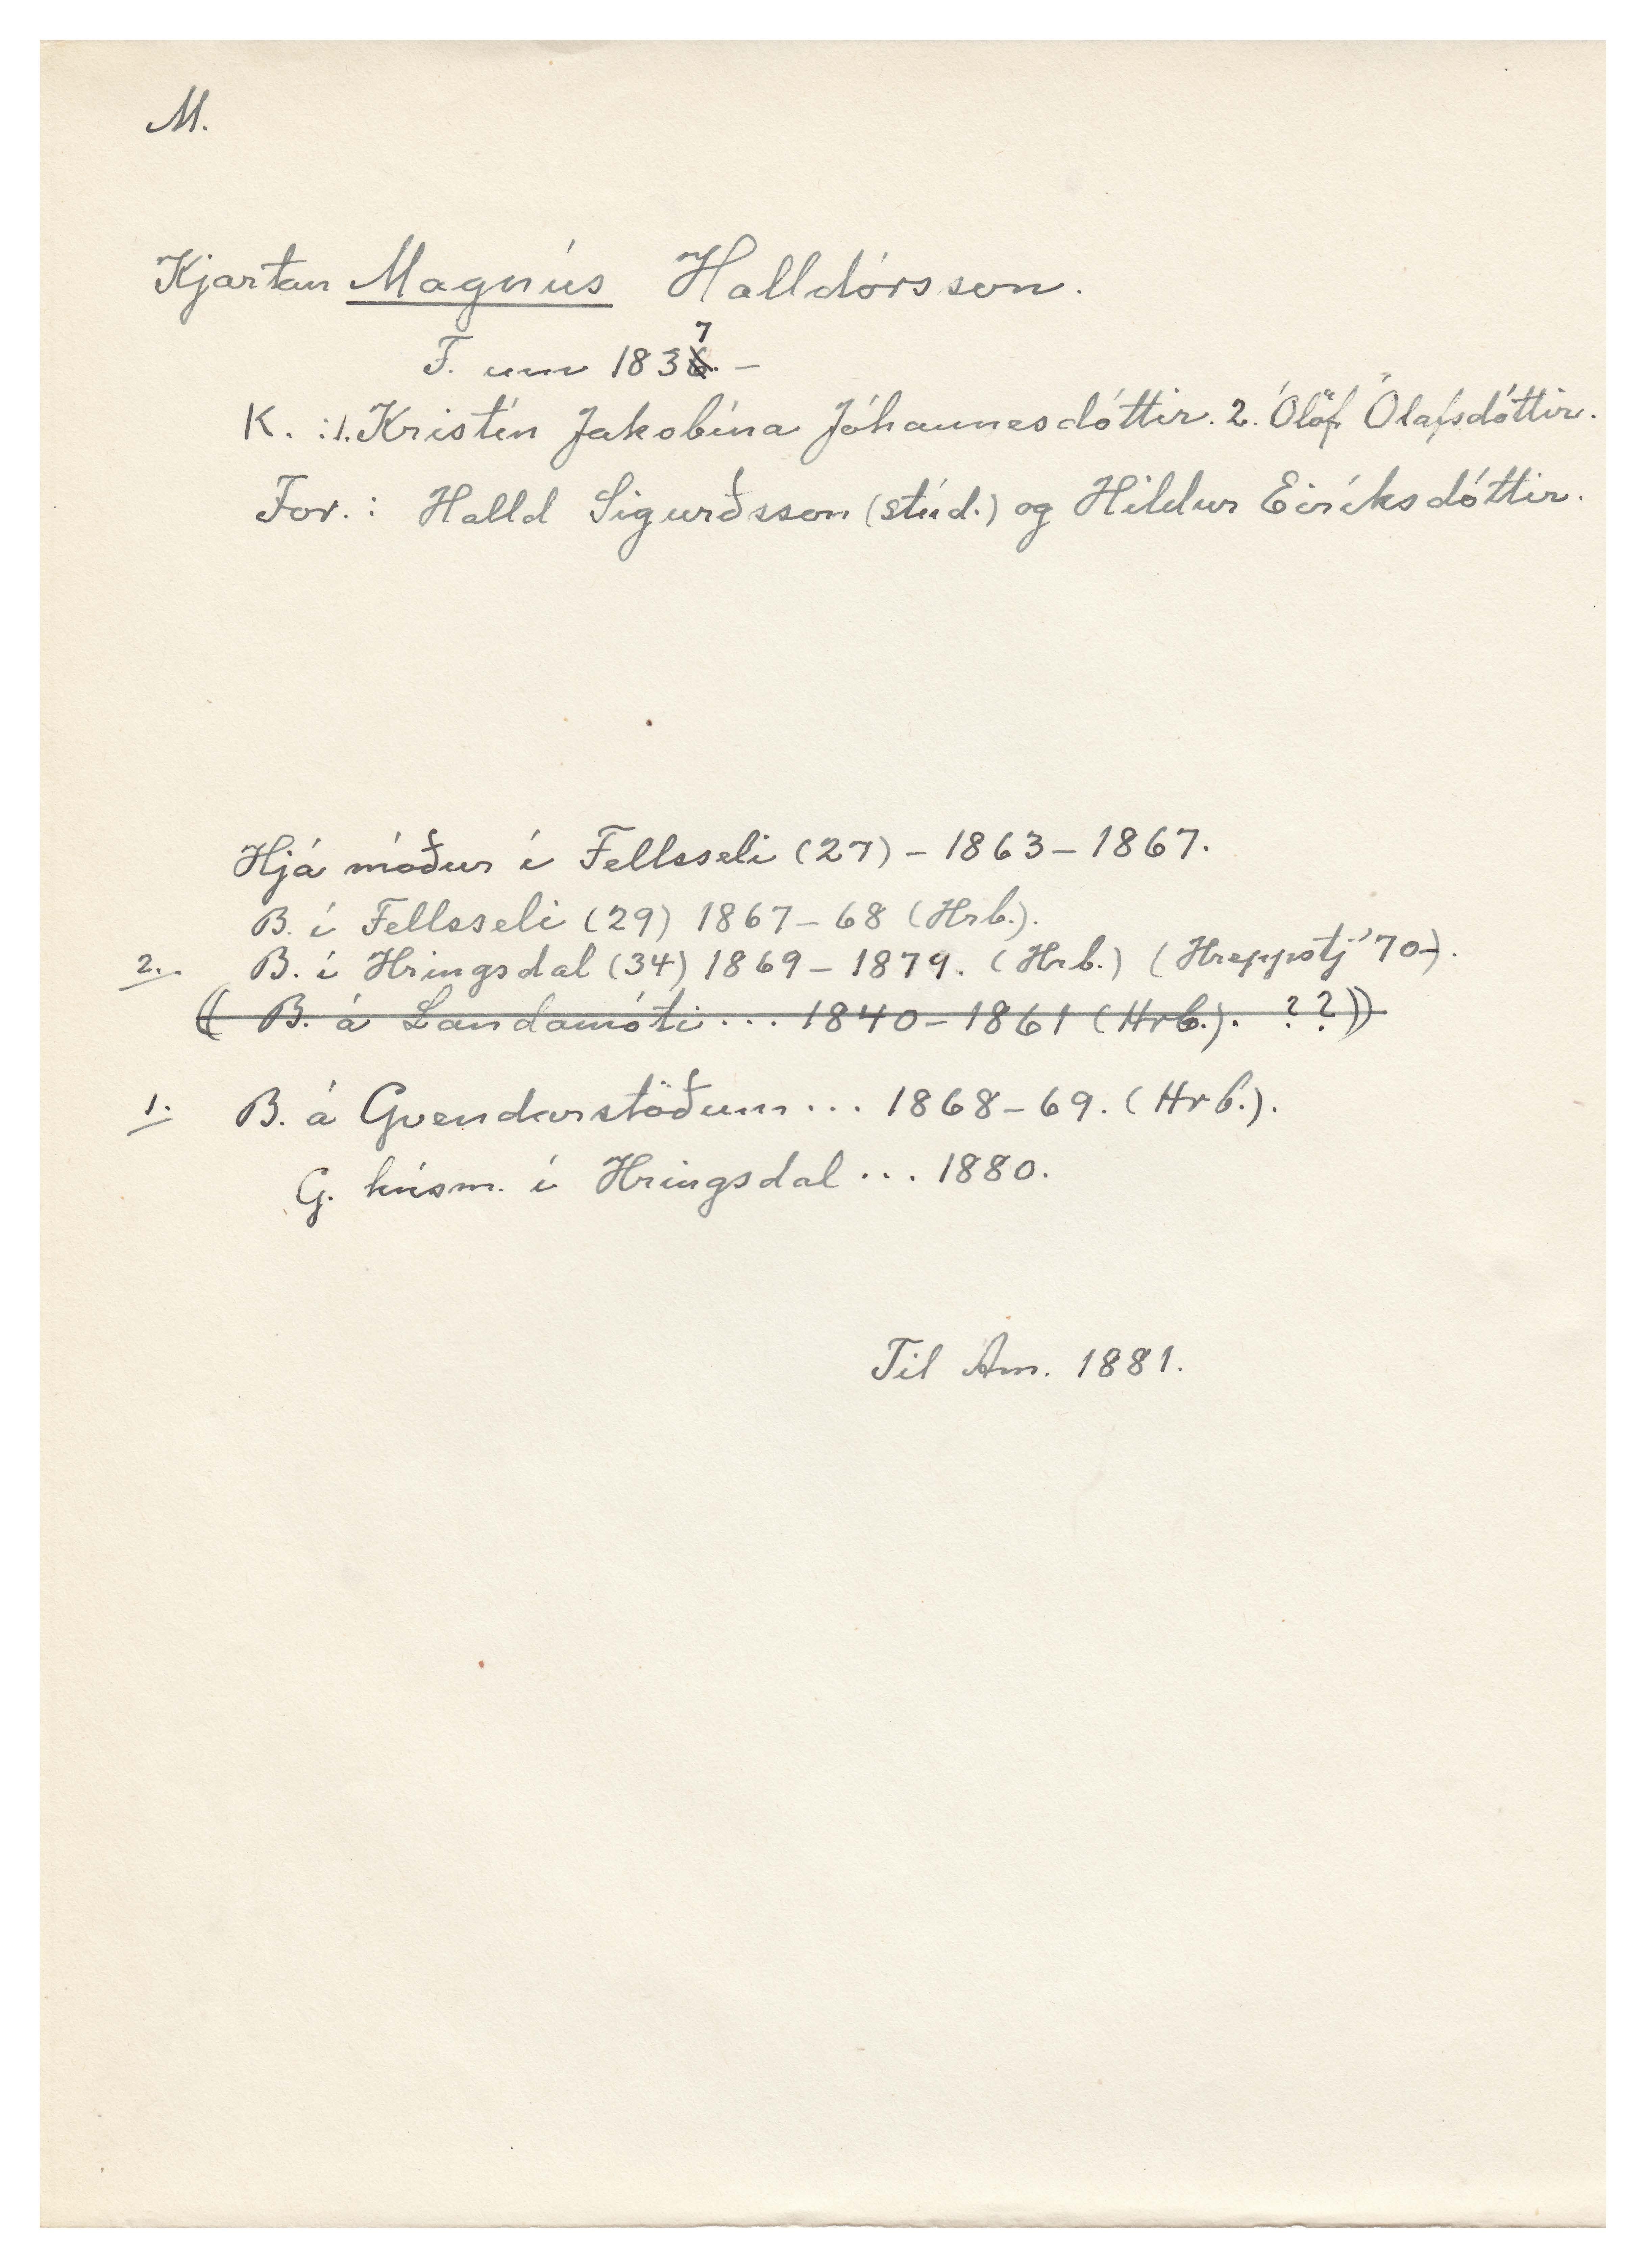 M.
Kjartan Magnús Halldórsson.
F. um 1837 –
K. :1. Kristín Jakobína Jóhannesdóttir. 2. Ólöf Ólafsdóttir.
For.: Halld Sigurðsson (stúd.) og Hildur Eiríksdóttir.
Hjá móður í Fellsseli (27) – 1863 – 1867.
B. í Fellsseli (29) 1867 – 68 (Hrb.).
2. B. í Hringsdal (34) 1869 – 1879. (Hrb.) (Hreppstj '70–).
(( B. á Landamóti ... 1840 – 1861 (Hrb.). ??))
1. B. á Gvendarstöðum ... 1868 – 69. (Hrb.).
G. húsm. í Hringsdal ... 1880.
Til Am. 1881.